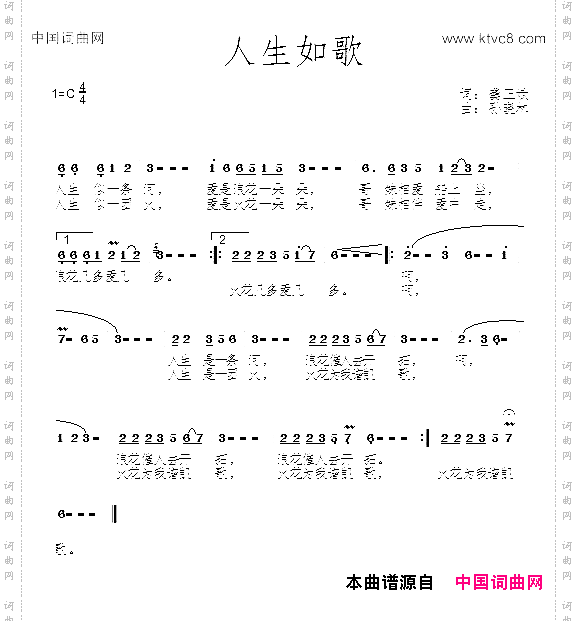 中国词曲网
人生如歌
www.ktvc8.com
1=C 4/4
词：龚正长
曲：孙晓林
6 6 6 1 2 3 - - - i 6 6 5 1 5 3 - - - 6. 6 3 5 2 1 2 - -
人生 似一条 河， 爱是浪花一朵 朵， 哥 妹相爱 船上 坐，
人生 似一团 火， 爱是火花一朵 朵， 哥 妹相伴 爱中 走，
1 2
6 6 6 1 2 1 2 3 - - - :||: 2 2 2 3 5 i 7 6 - - - :||: 2 - - 3 6 - - i
浪花几多爱几 多。 啊，
火花几多爱几 多。 啊，
7 - 6 5 3 - - - 2 2 2 3 5 6 3 - - - 2 2 2 3 5 6 7 3 - - - 2. 3 6 -
人生 是一条 河， 浪花催人去开 拓， 啊，
人生 是一团 火， 火花为我谱凯 歌，
1 2 3 - 2 2 2 3 5 6 7 3 - - - 2 2 2 3 5 7 6 - - :| 2 2 2 3 5 7
浪花催人去开 拓， 浪花催人去开 拓。
火花为我谱凯 歌， 火花为我谱凯 歌， 火花为我谱凯
6 - - -
歌。
本曲谱源自 中国词曲网
词曲网